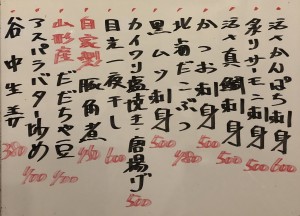 活〆かんぱち刺身 600
炙りサーモン刺身 500
活〆真鯛刺身 500
かつお刺身 500
北海だこぶつ 480
黒ムツ刺身 500
カイワリ塩焼き・唐揚げ 500
目光一夜干し 600
自家製豚角煮 480
山形産だだちゃ豆 400
アスパラバター炒め 400
谷中生姜 380